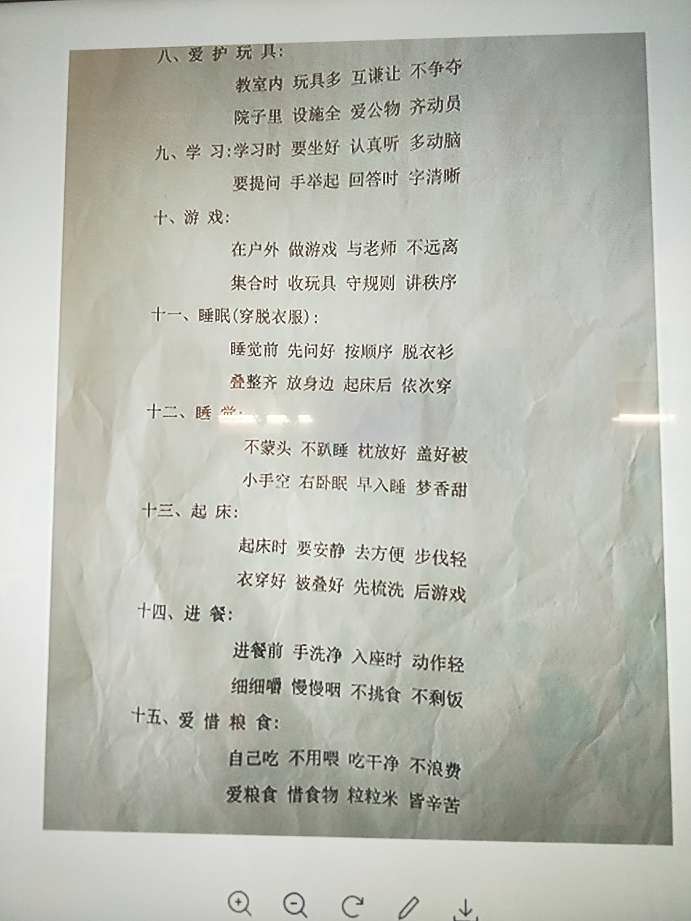 八、爱 护 玩 具:
教室内 玩具多 互谦让 不争夺
院子里 设施全 爱公物 齐动员
九、学 习:学习时 要坐好 认真听 多动脑
要提问 手举起 回答时 字清晰
十、游 戏:
在户外 做游戏 与老师 不远离
集合时 收玩具 守规则 讲秩序
十一、睡眠(穿脱衣服):
睡觉前 先问好 按顺序 脱衣衫
叠整齐 放身边 起床后 依次穿
十二、睡 觉:
不蒙头 不趴睡 枕放好 盖好被
小手空 右卧眠 早入睡 梦香甜
十三、起 床:
起床时 要安静 去方便 步伐轻
衣穿好 被叠好 先梳洗 后游戏
十四、进 餐:
进餐前 手洗净 入座时 动作轻
细细嚼 慢慢咽 不挑食 不剩饭
十五、爱 惜 粮 食:
自己吃 不用喂 吃干净 不浪费
爱粮食 惜食物 粒粒米 皆辛苦